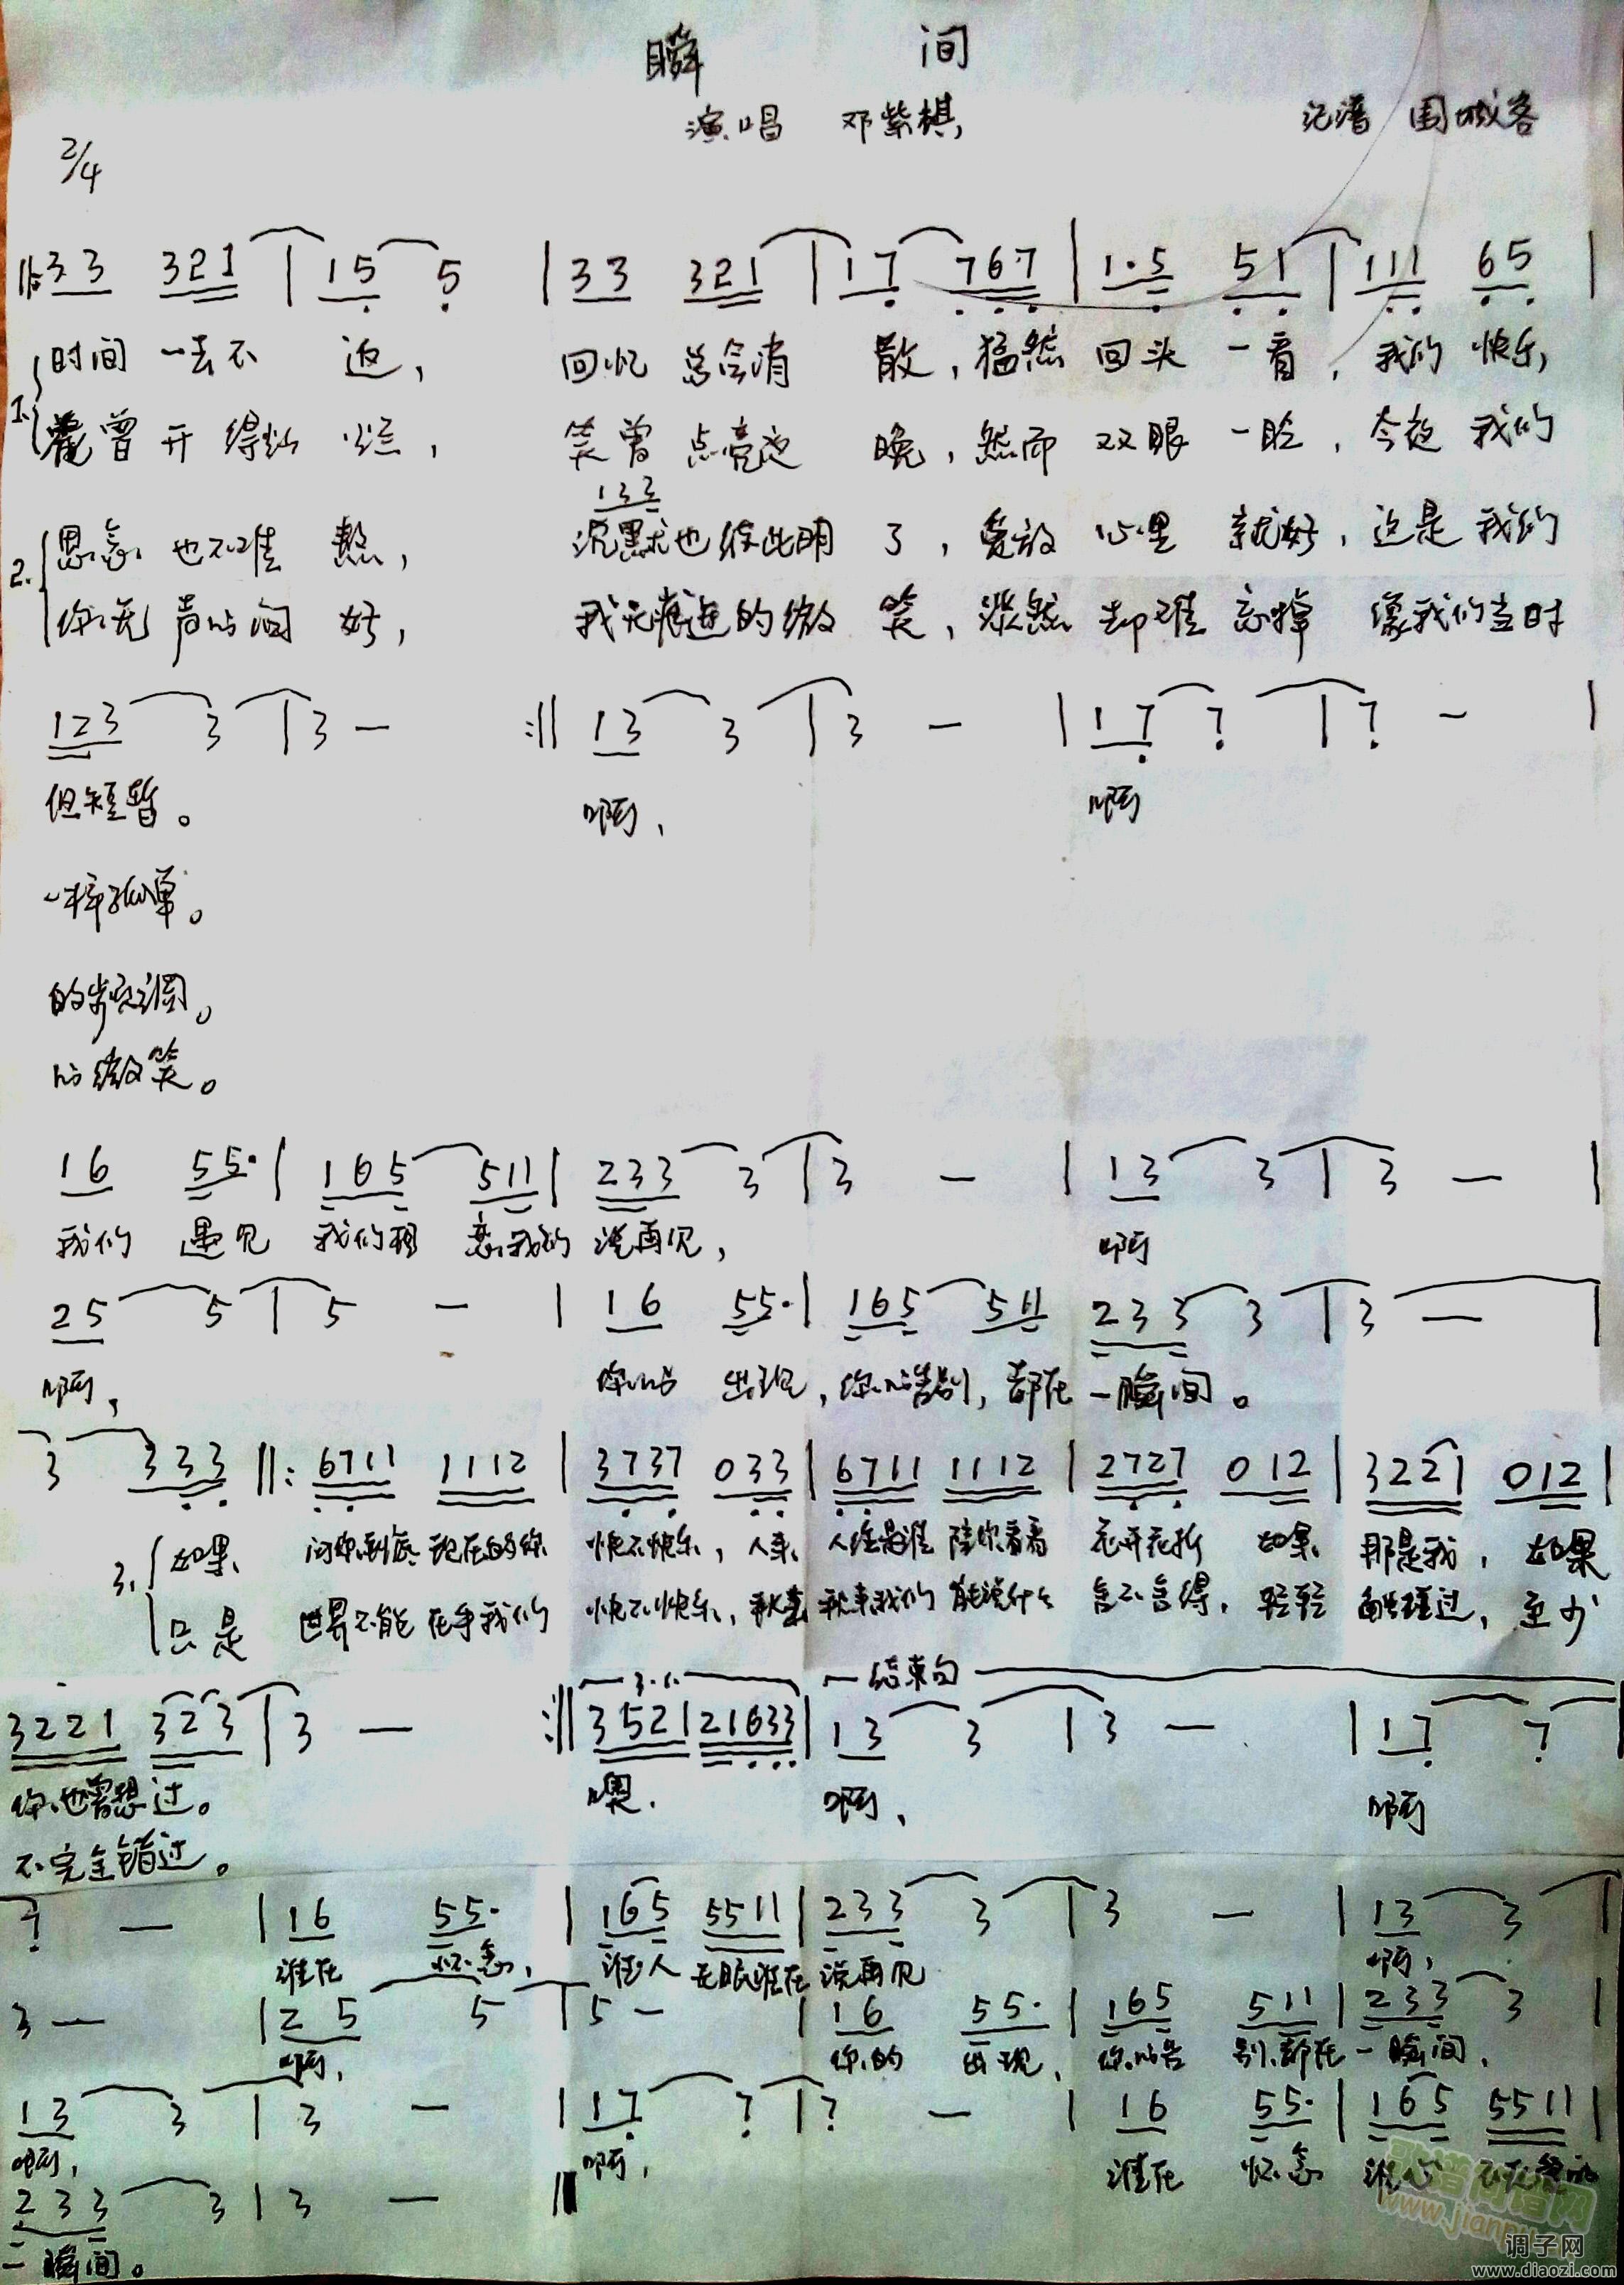 瞬 间
演唱 邓紫棋 记谱 围城客
2/4
‖: 33 321 | 15 5 | 33 321 | 17 767 | 1·5 51 | 111 65 |
1. 时间 一去不 返, 回忆 总会消 散, 猛然 回头 一看, 我的 快乐,
花曾 开得灿 烂, 笑曾 点亮夜 晚, 然而 双眼 一眨, 今夜 我的
133
2. 思念 也不难 熬, 沉默也彼此明 了, 爱放 心里 就好, 这是 我们
你无 声的问 好, 我无痕迹的微 笑, 淡然 却难 忘掉 像我们当时
123 3 | 3 — :‖ 13 3 | 3 — | 17 7 | 7 — |
但短暂。 啊, 啊
一样孤单。
的步调。
的微笑。
16 55· | 165 511 | 233 3 | 3 — | 13 3 | 3 — |
我们 遇见 我们相 恋,我们 说再见, 啊
25 5 | 5 — | 16 55· | 165 511 233 3 | 3 — |
啊, 你的 出现, 你的告别, 都在 一瞬间。
3 333 ‖: 6711 1112 | 3737 033 | 6711 1112 | 2727 012 | 3221 012 |
3. 如果 问你到底 现在的你 快不快乐, 人来 人往是谁 陪你看着 花开花折 如果 那是我, 如果
只是 世界不能 在乎我们 快不快乐, 秋来 我们 能说什么 舍不舍得, 轻轻 触碰过, 至少
3221 323 | 3 — :‖ 3521 21633 | 13 3 | 3 — | 17 7 |
结束句
你也曾想过。 噢. 啊, 啊
不完全错过。
7 — | 16 55· | 165 5511 | 233 3 | 3 — | 13 3
谁在 怀念, 谁人 无眠谁在 说再见 啊,
3 — | 25 5 | 5 — | 16 55· | 165 511 | 233 3 |
啊, 你的 出现, 你的告 别,都在 一瞬间,
13 3 | 3 — | 17 7 | 7 — | 16 55· | 165 5511 |
啊, 啊, 谁在 怀念
233 3 | 3 — ‖
一瞬间。
歌谱简谱网
www.jianpu
调子网
www.diaozi.com